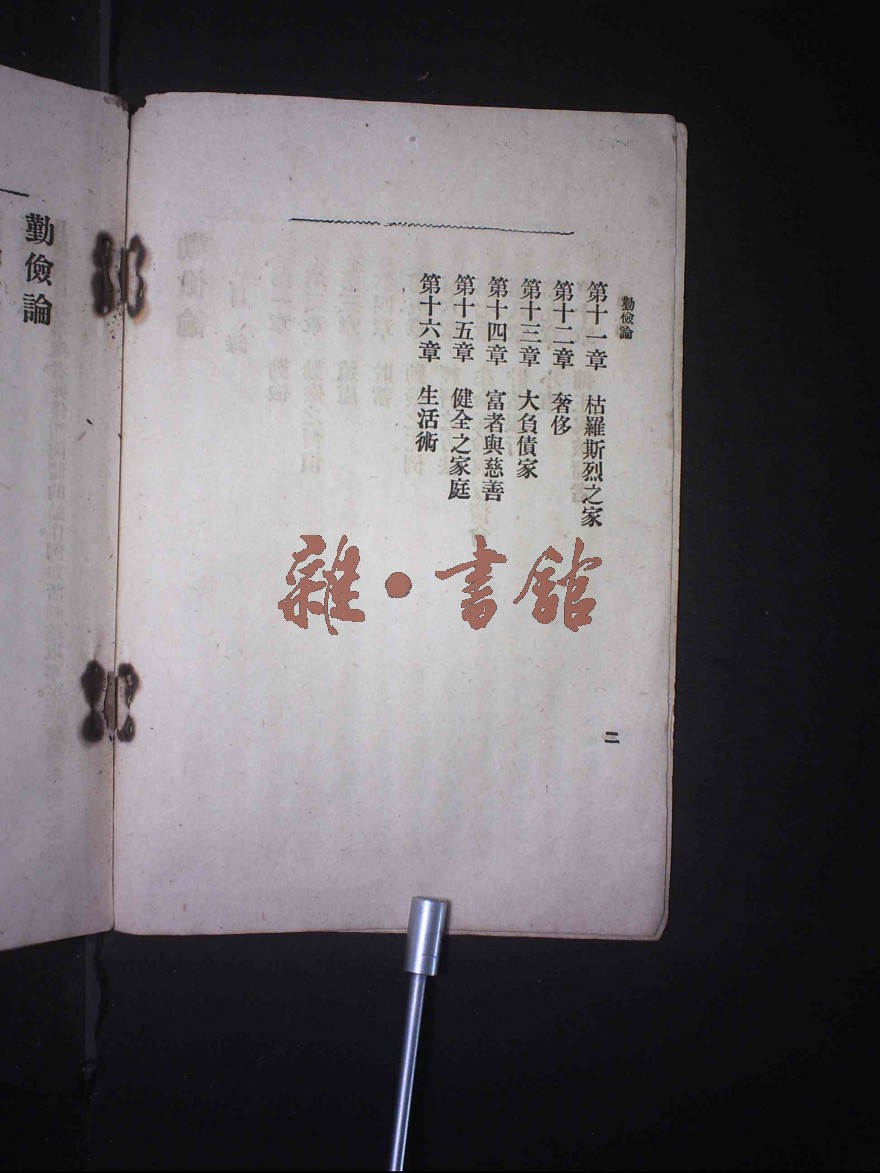 勤儉論
第十一章 枯羅斯烈之家
第十二章 奢侈
第十三章 大負債家
第十四章 富者與慈善
第十五章 健全之家庭
第十六章 生活術
二
雜·書館
勤儉論